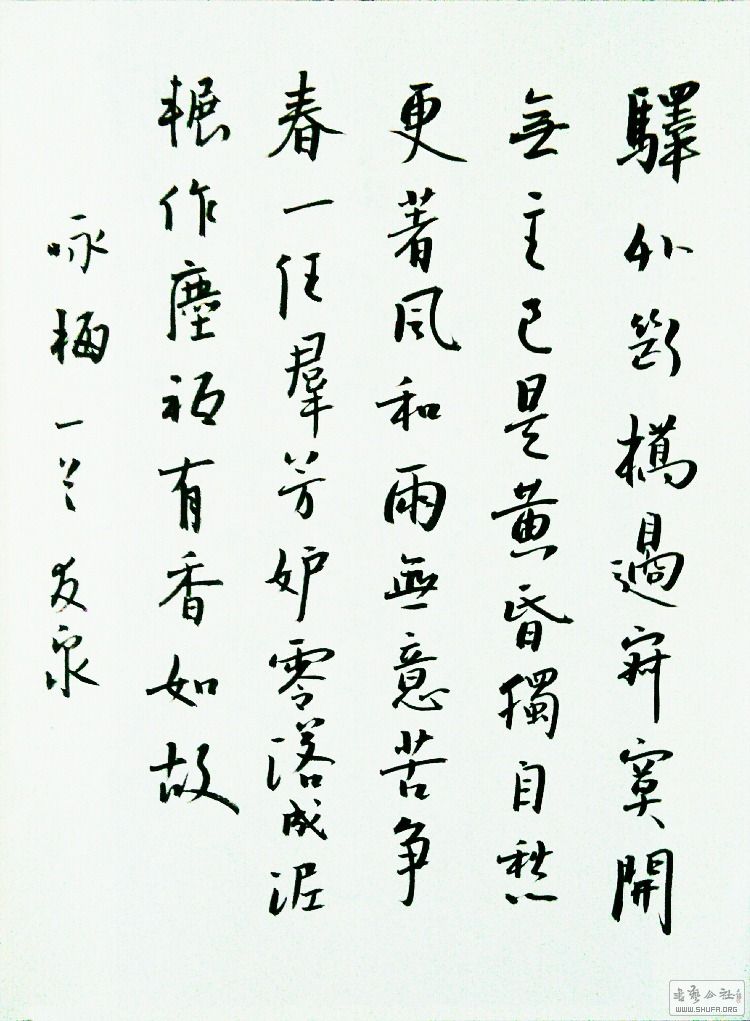 驛外斷橋邊寂寞開
無主已是黃昏獨自愁
更著風和雨無意苦争
春一任羣芳妒零落成泥
輾作塵祗有香如故
咏梅一首 友泉
书艺公社
WWW.SHUFA.ORG